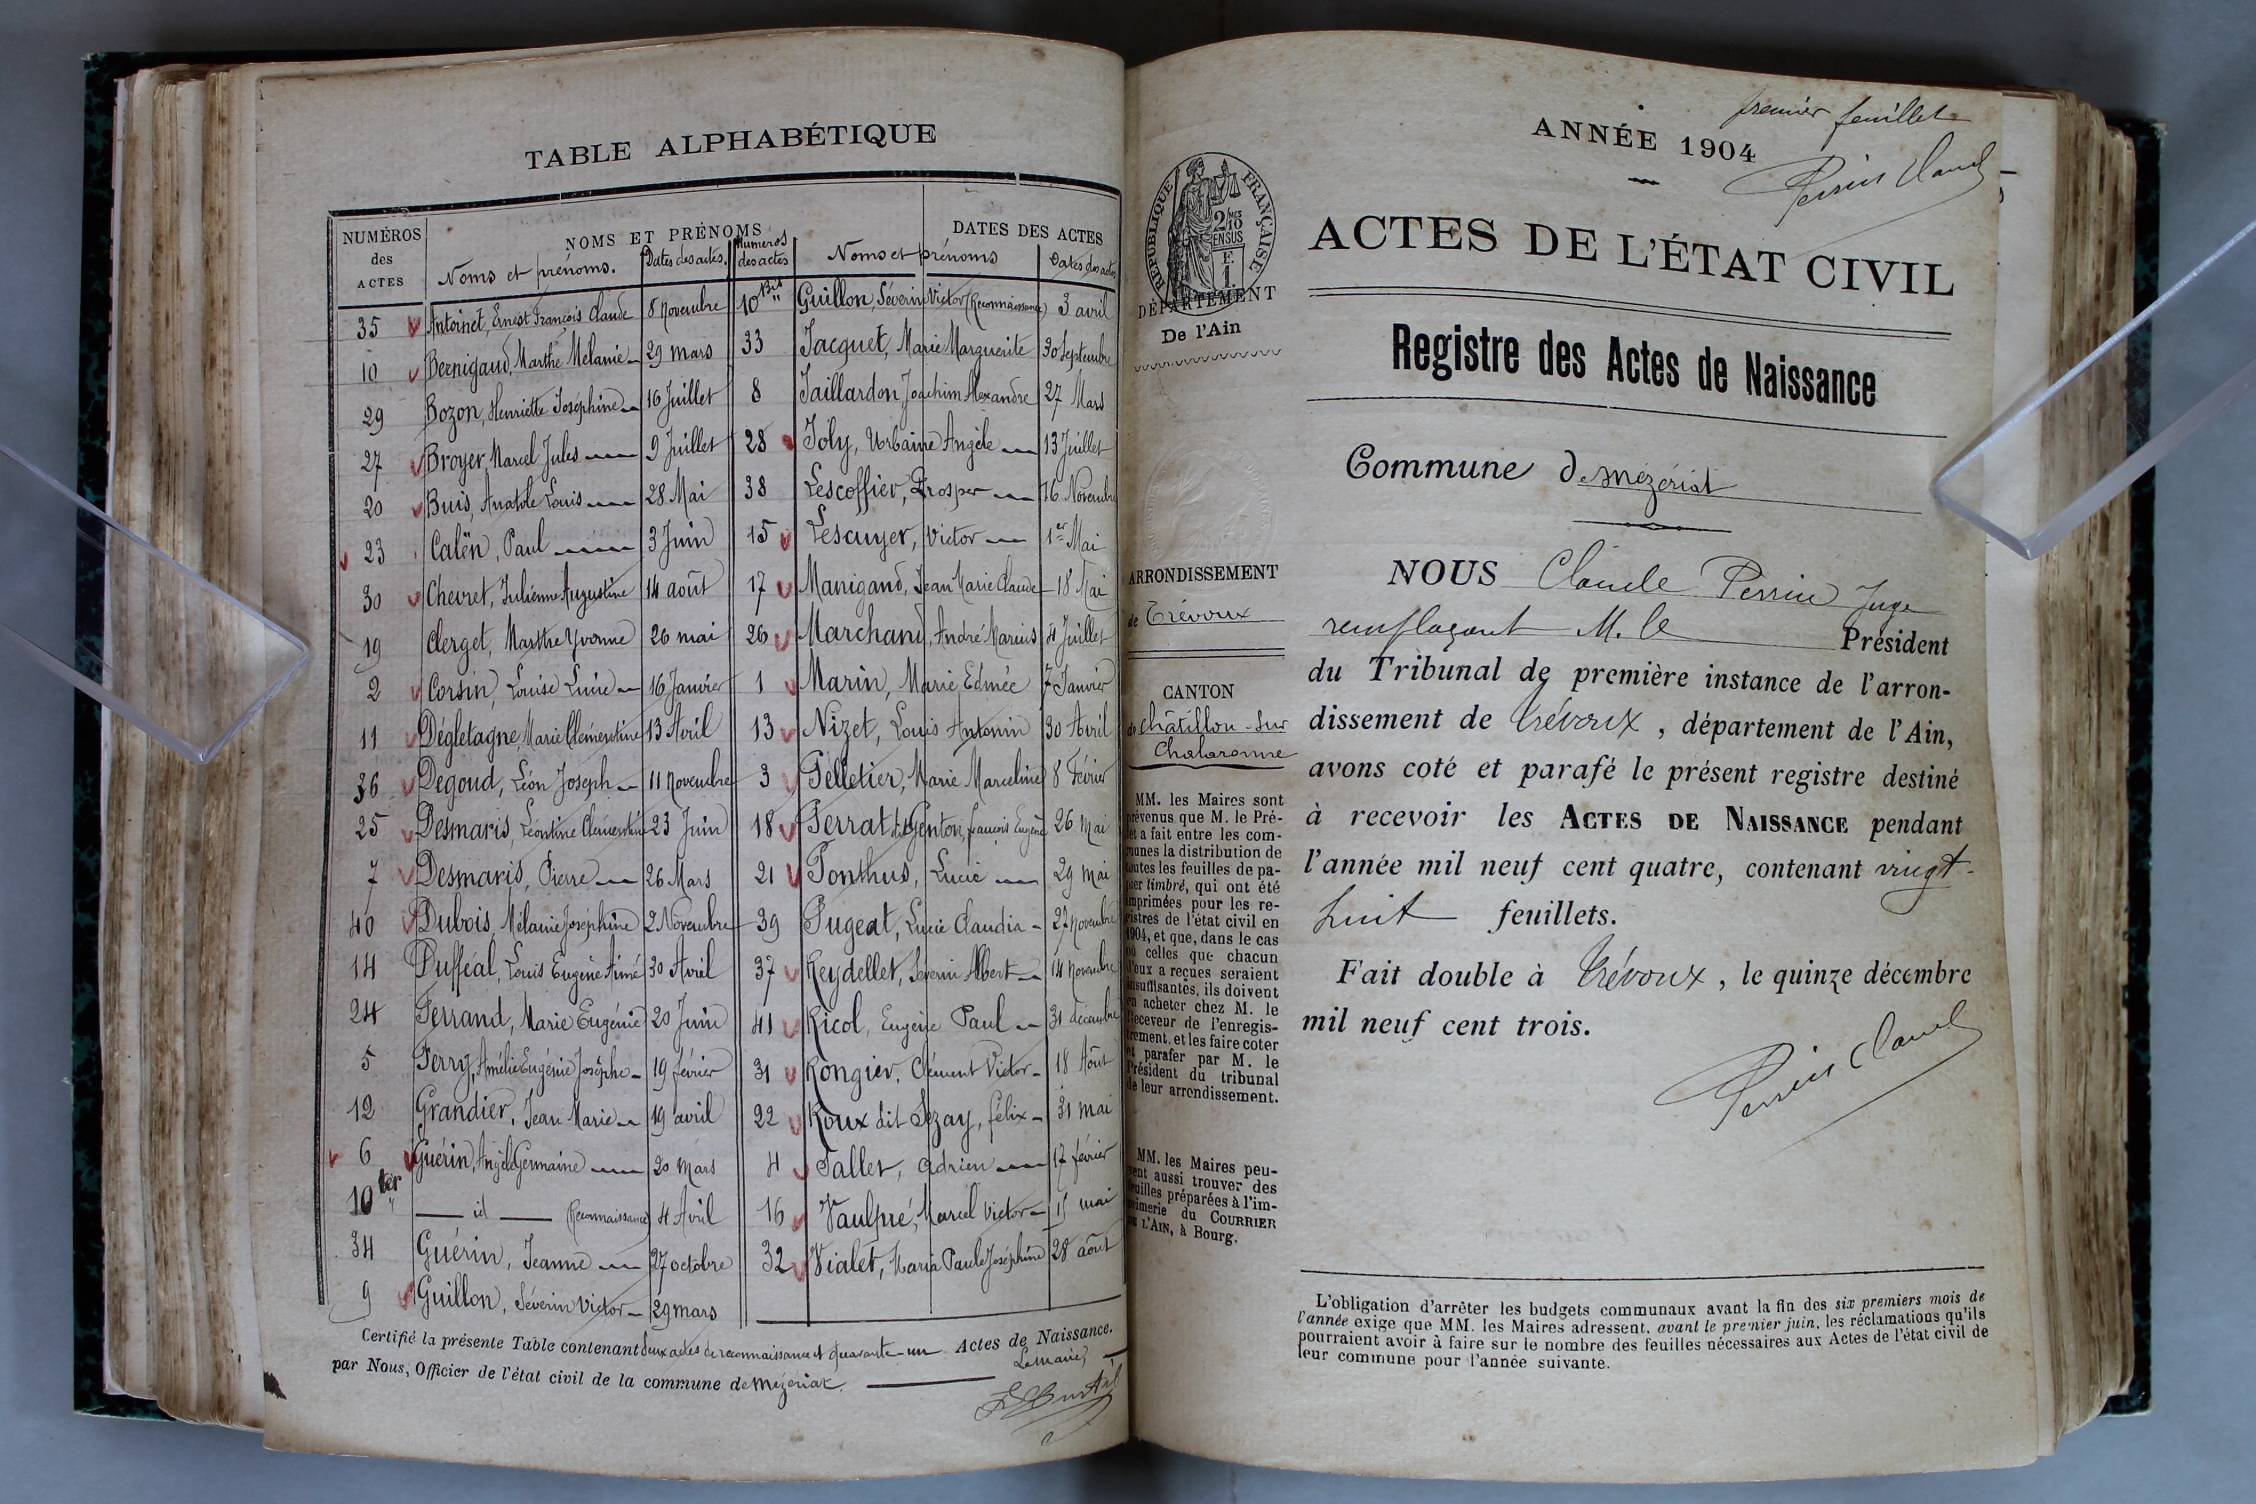 TABLE ALPHABÉTIQUE
NUMÉROS des ACTES
NOMS ET PRÉNOMS
DATES DES ACTES
Noms et prénoms. Dates des actes. Numéros des actes Noms et prénoms Dates des actes
35 Antoinet, Ernest François Claude 8 Novembre 10 Bis Guillon, Séverin Victor (Reconnaissance) 3 avril
10 Bernigaud, Marthe Mélanie 29 Mars 33 Jacquet, Marie Marguerite 30 Septembre
29 Bozon, Henriette Joséphine 16 Juillet 8 Jaillardon Joachim Alexandre 27 Mars
27 Broyer, Marcel Jules 9 Juillet 28 Joly, Urbaine Angèle 13 Juillet
20 Buis, Anatole Louis 28 Mai 38 Lescoffier, Prosper 16 Novembre
23 Calën, Paul 3 Juin 15 Lescuyer, Victor 1er Mai
30 Chevret, Julienne Augustine 14 août 17 Manigand, Jean Marie Claude 18 Mai
19 Clerget, Marthe Yvonne 26 mai 26 Marchand, André Marius 4 Juillet
2 Corsin, Louise Lucie 16 Janvier 1 Marin, Marie Edmée 7 Janvier
11 Dégletagne, Marie Clémentine 13 Avril 13 Nizet, Louis Antonin 30 Avril
36 Degoud, Léon Joseph 11 Novembre 3 Pelletier, Marie Marceline 8 Février
25 Desmaris, Léontine Clémentine 23 Juin 18 Perrat dit Genton, françois Eugène 26 Mai
7 Desmaris, Pierre 26 Mars 21 Ponthus, Lucie 29 mai
40 Dubois, Mélanie Joséphine 2 Novembre 39 Pugeat, Lucie Claudia 27 Novembre
14 Pufféal, Louis Eugène Aimé 30 Avril 37 Reydellet, Séverin Albert 14 Novembre
24 Ferrand, Marie Eugénie 20 Juin 41 Ricol, Eugène Paul 31 décembre
5 Ferry, Amélie Eugénie Josèphe 19 février 31 Rongier, Clément Victor 18 Août
12 Grandier, Jean Marie 19 avril 22 Roux dit Sezay, félix 31 mai
6 Guérin, Angèle Germaine 20 Mars 4 Tallet, Adrien 17 février
10 ter id (Reconnaissance) 4 Avril 16 Vaulpré, Marcel Victor 15 mai
34 Guérin, Jeanne 27 octobre 32 Vialet, Maria Paule Joséphine 28 août
9 Guillon, Séverin Victor 29 mars
Certifié la présente Table contenant deux actes de reconnaissance et quarante-un Actes de Naissance.
par Nous, Officier de l'état civil de la commune de Mézériat.
Le Maire,
RÉPUBLIQUE FRANÇAISE
2/10 EN SUS
DÉPARTEMENT
De l'Ain
ARRONDISSEMENT
de Trévoux
CANTON
de Châtillon-sur
Chalaronne
MM. les Maires sont
prévenus que M. le Pré-
fet a fait entre les com-
munes la distribution de
toutes les feuilles de pa-
pier timbré, qui ont été
imprimées pour les re-
gistres de l'état civil en
1904, et que, dans le cas
où celles que chacun
d'eux a reçues seraient
insuffisantes, ils doivent
en acheter chez M. le
Receveur de l'enregis-
trement, et les faire coter
et parafer par M. le
Président du tribunal
de leur arrondissement.
MM. les Maires peu-
vent aussi trouver des
feuilles préparées à l'im-
primerie du COURRIER
DE L'AIN, à Bourg.
premier feuillet
ANNÉE 1904
Perrin Claude
ACTES DE L'ÉTAT CIVIL
Registre des Actes de Naissance
Commune de Mézériat
NOUS Claude Perrin Juge
remplaçant M. le Président
du Tribunal de première instance de l'arron-
dissement de Trévoux, département de l'Ain,
avons coté et parafé le présent registre destiné
à recevoir les ACTES DE NAISSANCE pendant
l'année mil neuf cent quatre, contenant vingt-
huit feuillets.
Fait double à Trévoux, le quinze décembre
mil neuf cent trois.
Perrin Claude
L'obligation d'arrêter les budgets communaux avant la fin des six premiers mois de
l'année exige que MM. les Maires adressent, avant le premier juin, les réclamations qu'ils
pourraient avoir à faire sur le nombre des feuilles nécessaires aux Actes de l'état civil de
leur commune pour l'année suivante.